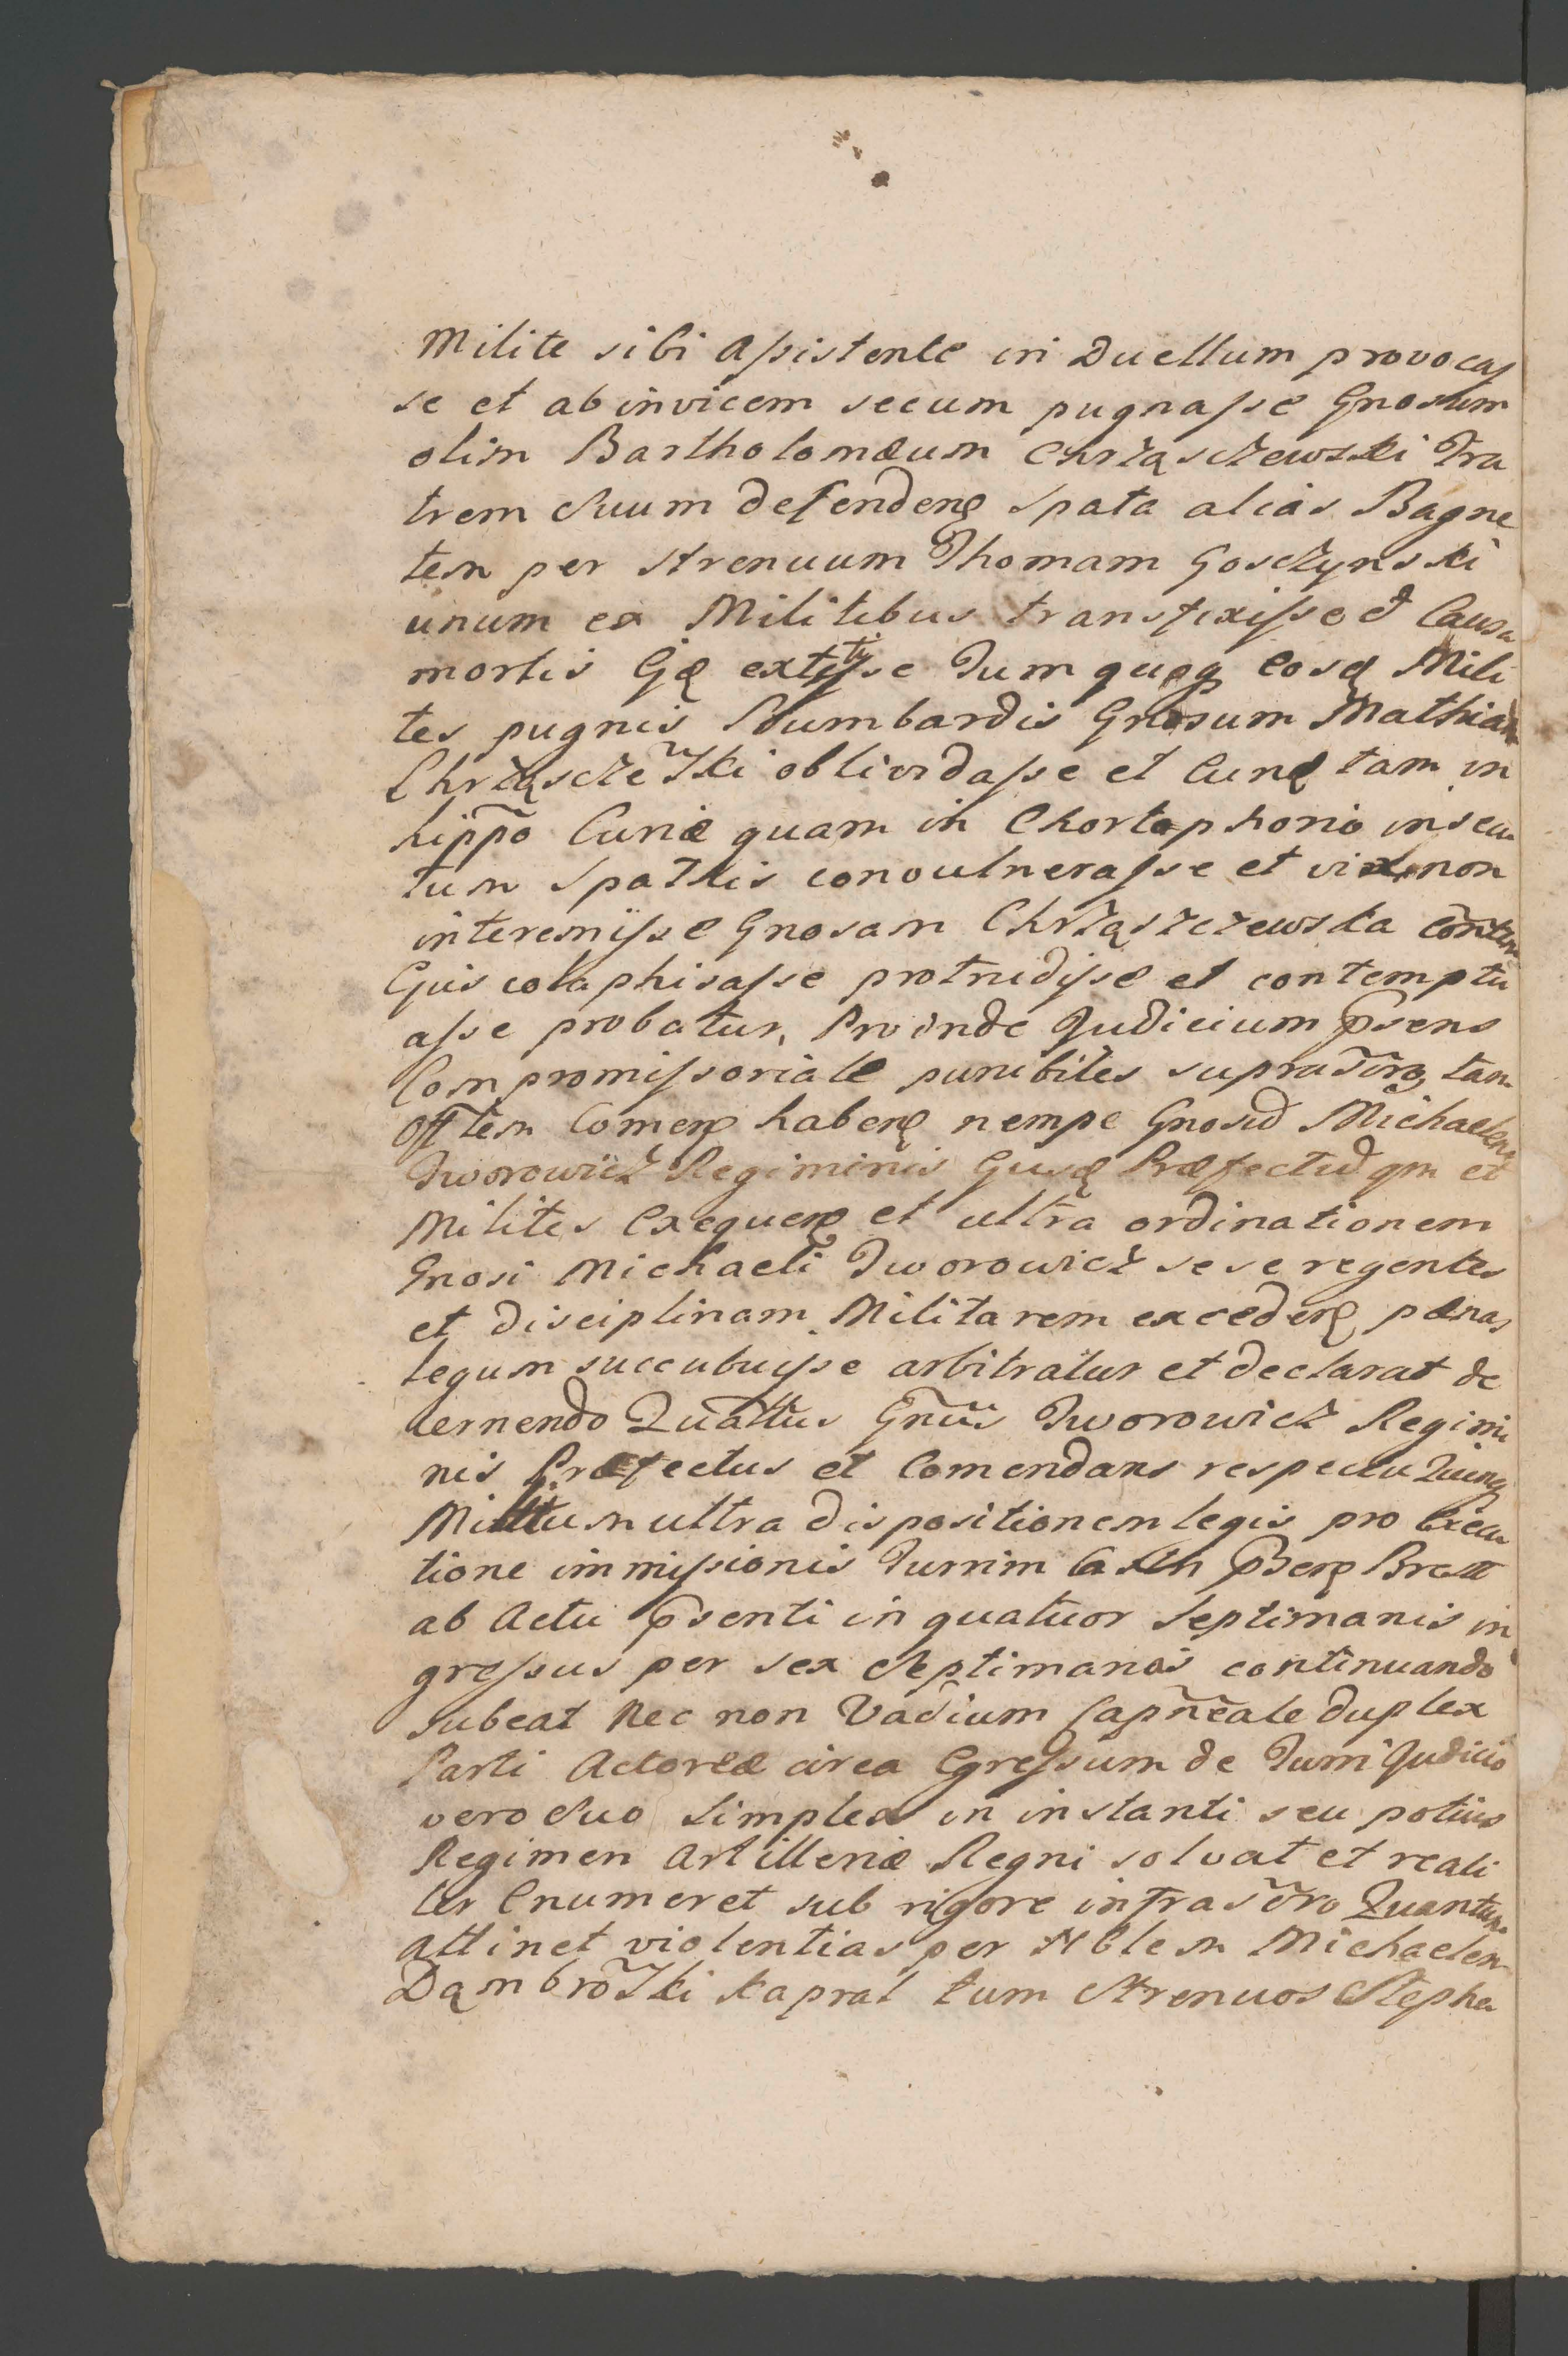 Milite sibi assistente in Duellum provocas
se et ab invicem secum pugnasse Gnosum
olim Bartholomæum Chrząsczewski Fra
trem Suum defenden Spata alias Bagne
tem per Strenuum Thomam Gosczynski
unum ex Militibus transfixisse et Causa
mortis Ejq extitisse Tum quoq eosq Mili
tes pugnis Bumbardis Gnosum Mathiam
Chrząsczeski oblividasse et Eunq tam in
hippo Curiæ quam in Chortophorio insecu
tum Spathis convulnerasse et vix non
interemisse Gnosam Chrząszczewska
Ejus colaphisasse protrudisse et contemptu
asse probatur, Proinde Judicium Psens
Compromissoriale punibiles tam
Offtem Comen haben nempe Gnosu Michaelem
Tworowicz Regiminis Ejusq Præfectu qm et
Milites Exequen et ultra ordinationem
Gnosi Michaeli Tworowicz sese regentes
et disciplinam Militarem exceden pœnas
legum succubuisse arbitratur et declarat de
cernendo Quattus Gnus Tworowicz Regimi
nis Præfectus et Comendans respectu Quinq
Militum ultra dispositionem legis pro Execu
tione immissionis Turrim Brest
ab Actu Psenti in quatuor Septimanis in
gressus per sex Septimanas continuando
subeat Nec non Vadium duplex
Parti Actoreæ circa Egressum de Turri Judicio
vero Suo simplex in instanti seu potius
Regimen Artilleriæ Regni solvat et reali
ter Enumeret sub rigore infrascro Quantum
attinet violentias per Nblem Michaelem
Dąmbroski kapral tum Strenuos Stepha